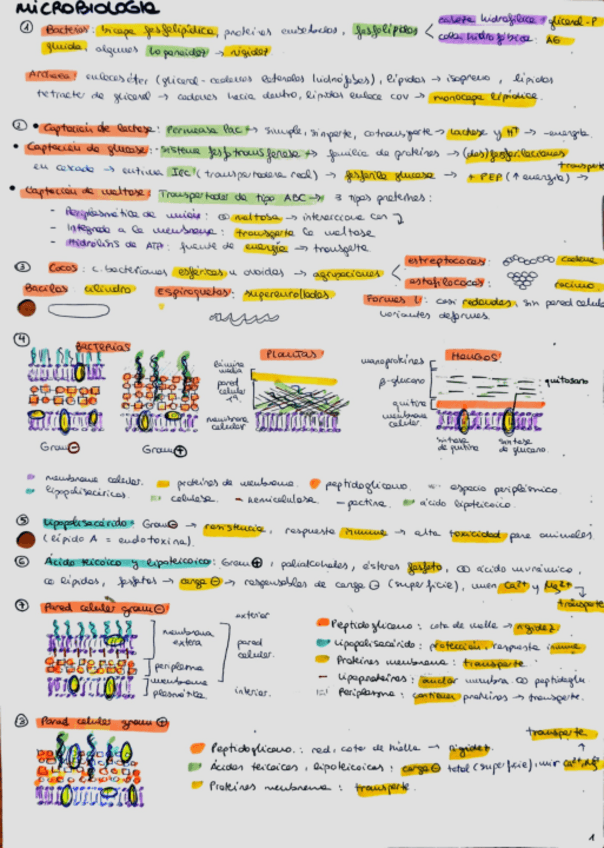 MICROBIOLOGIA
① Bacterias: bicapa fosfolipídica, proteínas embebidas, fosfolípidos < cabeza hidrofílica: glicerol-P
cola hidrofóbica: AG
fluida, algunos hopanoides → rigidez
Archaea: enlaces éter (glicerol - cadenas laterales hidrófobas), lípidos → isopreno, lípidos
tetraéter de glicerol → cadenas hacia dentro, lípidos enlace cov → monocapa lipídica.
② • Captación de lactosa: Permeasa Lac → simple, simporte, cotransporte → lactosa y H⁺ → -energía.
• Captación de glucosa: Sistema fosfotransferasa → familia de proteínas → (des)fosforilaciones
transporte
en cascada → enzima IIc (transportadora real) → fosforila glucosa → + PEP (↑ energía) →
• Captación de maltosa: Transportador de tipo ABC → 3 tipos proteínas:
- Periplasmática de unión: co maltosa → interacciona con
- Integrada a la membrana: transporta la maltosa
- Hidrólisis de ATP: fuente de energía → transporte
③ Cocos: c. bacterianas esféricas u ovoides → agrupaciones < estreptococos: cadena
estafilococos: racimo.
Bacilos: cilindro Espiroquetas: superenrolladas Formas L: casi redondas, sin pared celular
variantes deformes.
④ BACTERIAS PLANTAS HONGOS
lámina media
pared celular 1ª
membrana celular
manoproteínas
β-glucano
quitina
membrana celular
quitosano
Gram ⊖ Gram ⊕
sintasa de quitina sintasa de glucano.
membrana celular. proteínas de membrana. peptidoglicano. espacio periplásmico.
lipopolisacáridos. celulosa. hemicelulosa. pectina. ácido lipoteicoico.
⑤ Lipopolisacárido: Gram ⊖ → resistencia, respuesta inmune → alta toxicidad para animales
(lípido A = endotoxina).
⑥ Ácido teicoico y lipoteicoico: Gram ⊕, polialcoholes, ésteres fosfato, co ácido murámico,
co lípidos, fosfatos → carga ⊖ → responsables de carga ⊖ (superficie), unen Ca²⁺ y Mg²⁺
transporte
⑦ Pared celular gram ⊖
exterior
membrana externa
periplasma
membrana plasmática
pared celular.
interior.
Peptidoglicano: cota de malla → rigidez
Lipopolisacárido: protección, respuesta inmune
Proteínas membrana: transporte
Lipoproteínas: anclar membra. co peptidogli
Periplasma: contiene proteínas → transporte.
⑧ Pared celular gram ⊕
transporte
Peptidoglicano: red, cota de malla → rigidez.
Ácidos teicoicos, lipoteicoicos: carga ⊖ total (superficie), unir Ca²⁺, Mg²⁺
Proteínas membrana: transporte.
1